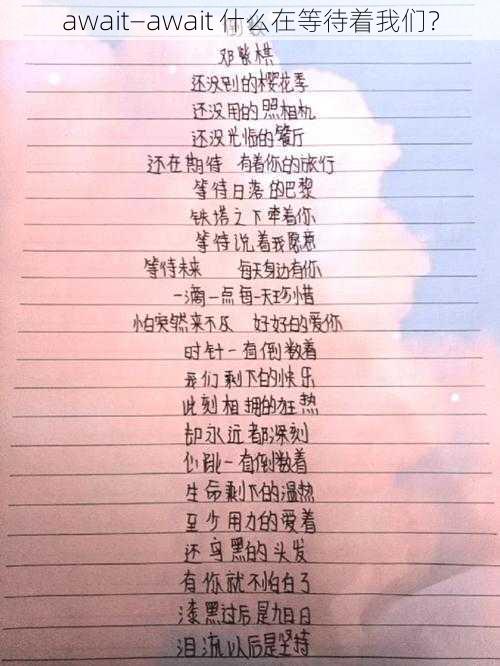 await—await 什么在等待着我们？
倒数
邓紫棋
还没到的樱花季
还没用的照相机
还没光临的餐厅
还在期待 有着你的旅行
等待日落的巴黎
铁塔之下牵着你
等待说着我愿意
等待未来 每天身边有你
一滴一点每一天珍惜
怕突然来不及 好好的爱你
时针一直倒数着
我们剩下的快乐
此刻相拥的狂热
却永远都深刻
心跳一直倒数着
生命剩下的温热
至少用力的爱着
还乌黑的头发
有你就不怕白了
漆黑过后是九日
泪流以后是坚持